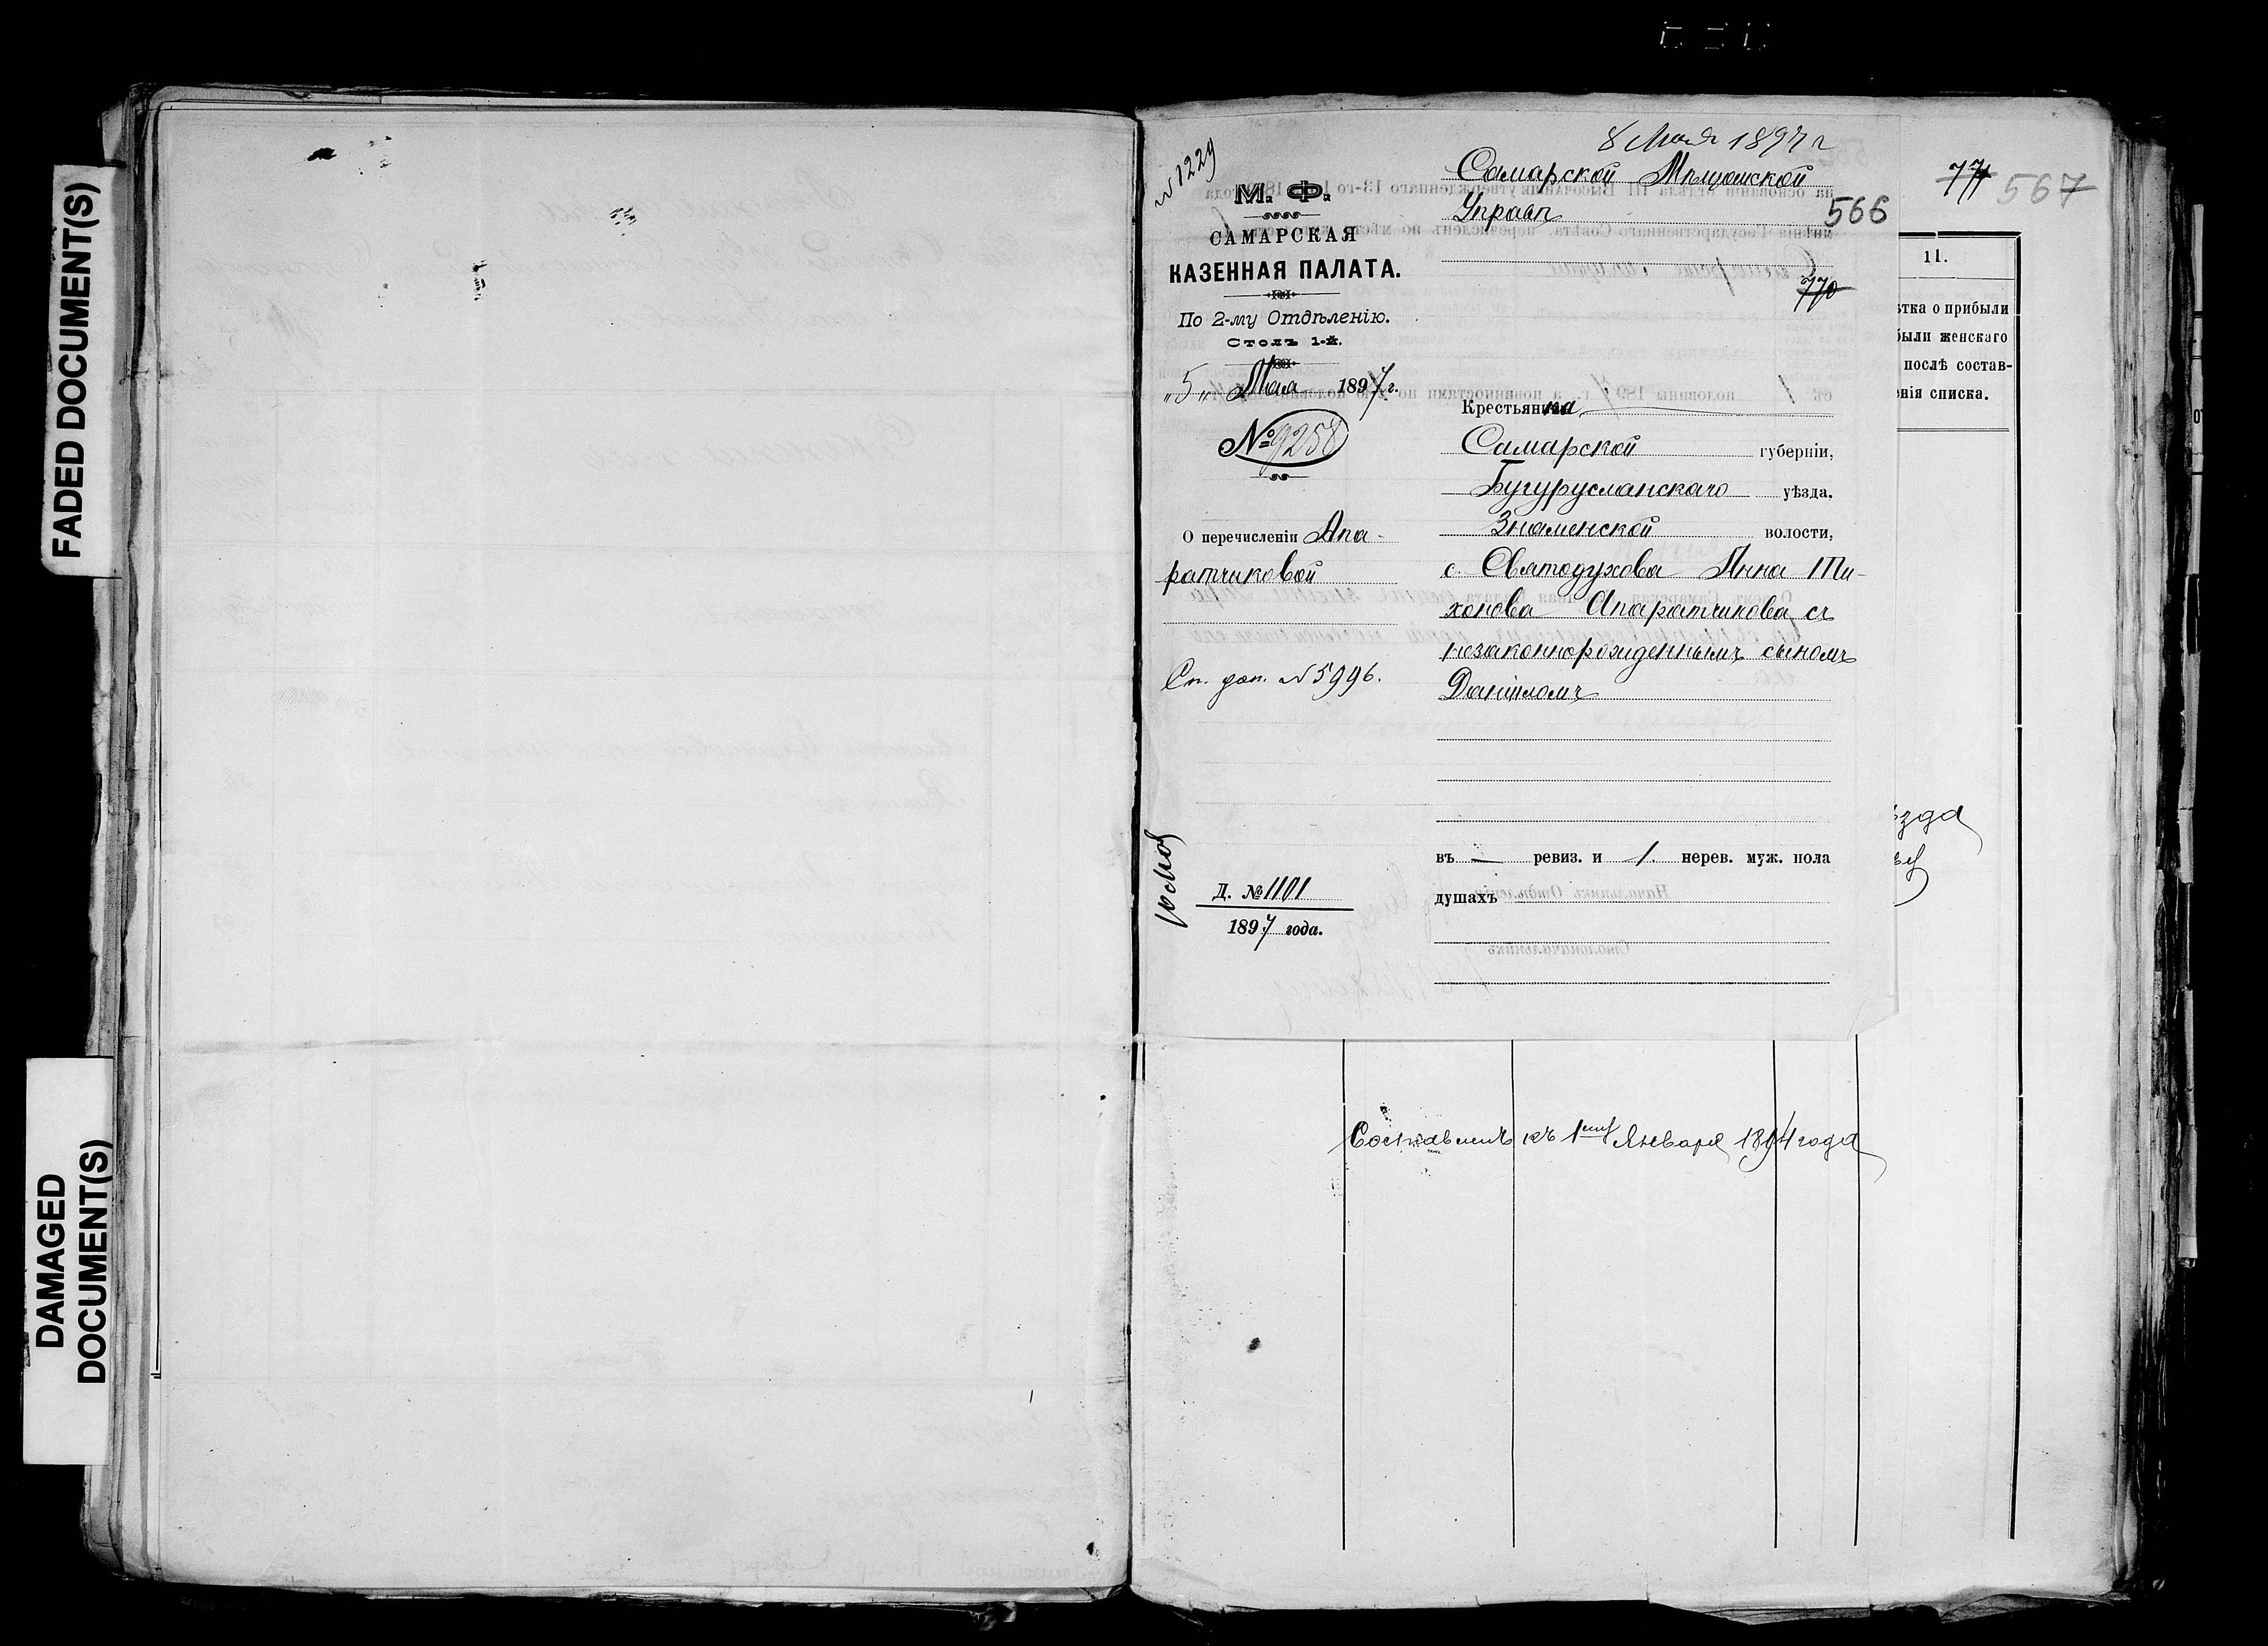 FADED DOCUMENT(S)
DAMAGED
DOCUMENT(S)
№ 1229
М. Ф.
САМАРСКАЯ
КАЗЕННАЯ ПАЛАТА.
По 2-му Отдѣленію.
Столъ 1-й.
„5„ Мая 1897 г.
№ 9258
О перечисленіи Апа-
ратчиковой
Сп. доп. № 5996.
Д. № 1101
1897 года.
8 Мая 1897 г
Самарской Мѣщанской
Управѣ
566
770
Крестьянка
Самарской губерніи,
Бугурусланскаго уѣзда.
Знаменской волости,
с. Святодухова Анна Ти-
хонова Апаратчикова съ
незаконнорожденнымъ сыномъ
Даніиломъ
въ — ревиз. и 1. нерев. муж. пола
душахъ
771 567
11.
ѣтка о прибыли
были женскаго
послѣ состав-
енія списка.
ѣзда
Составленъ къ 1му Января 1894 года